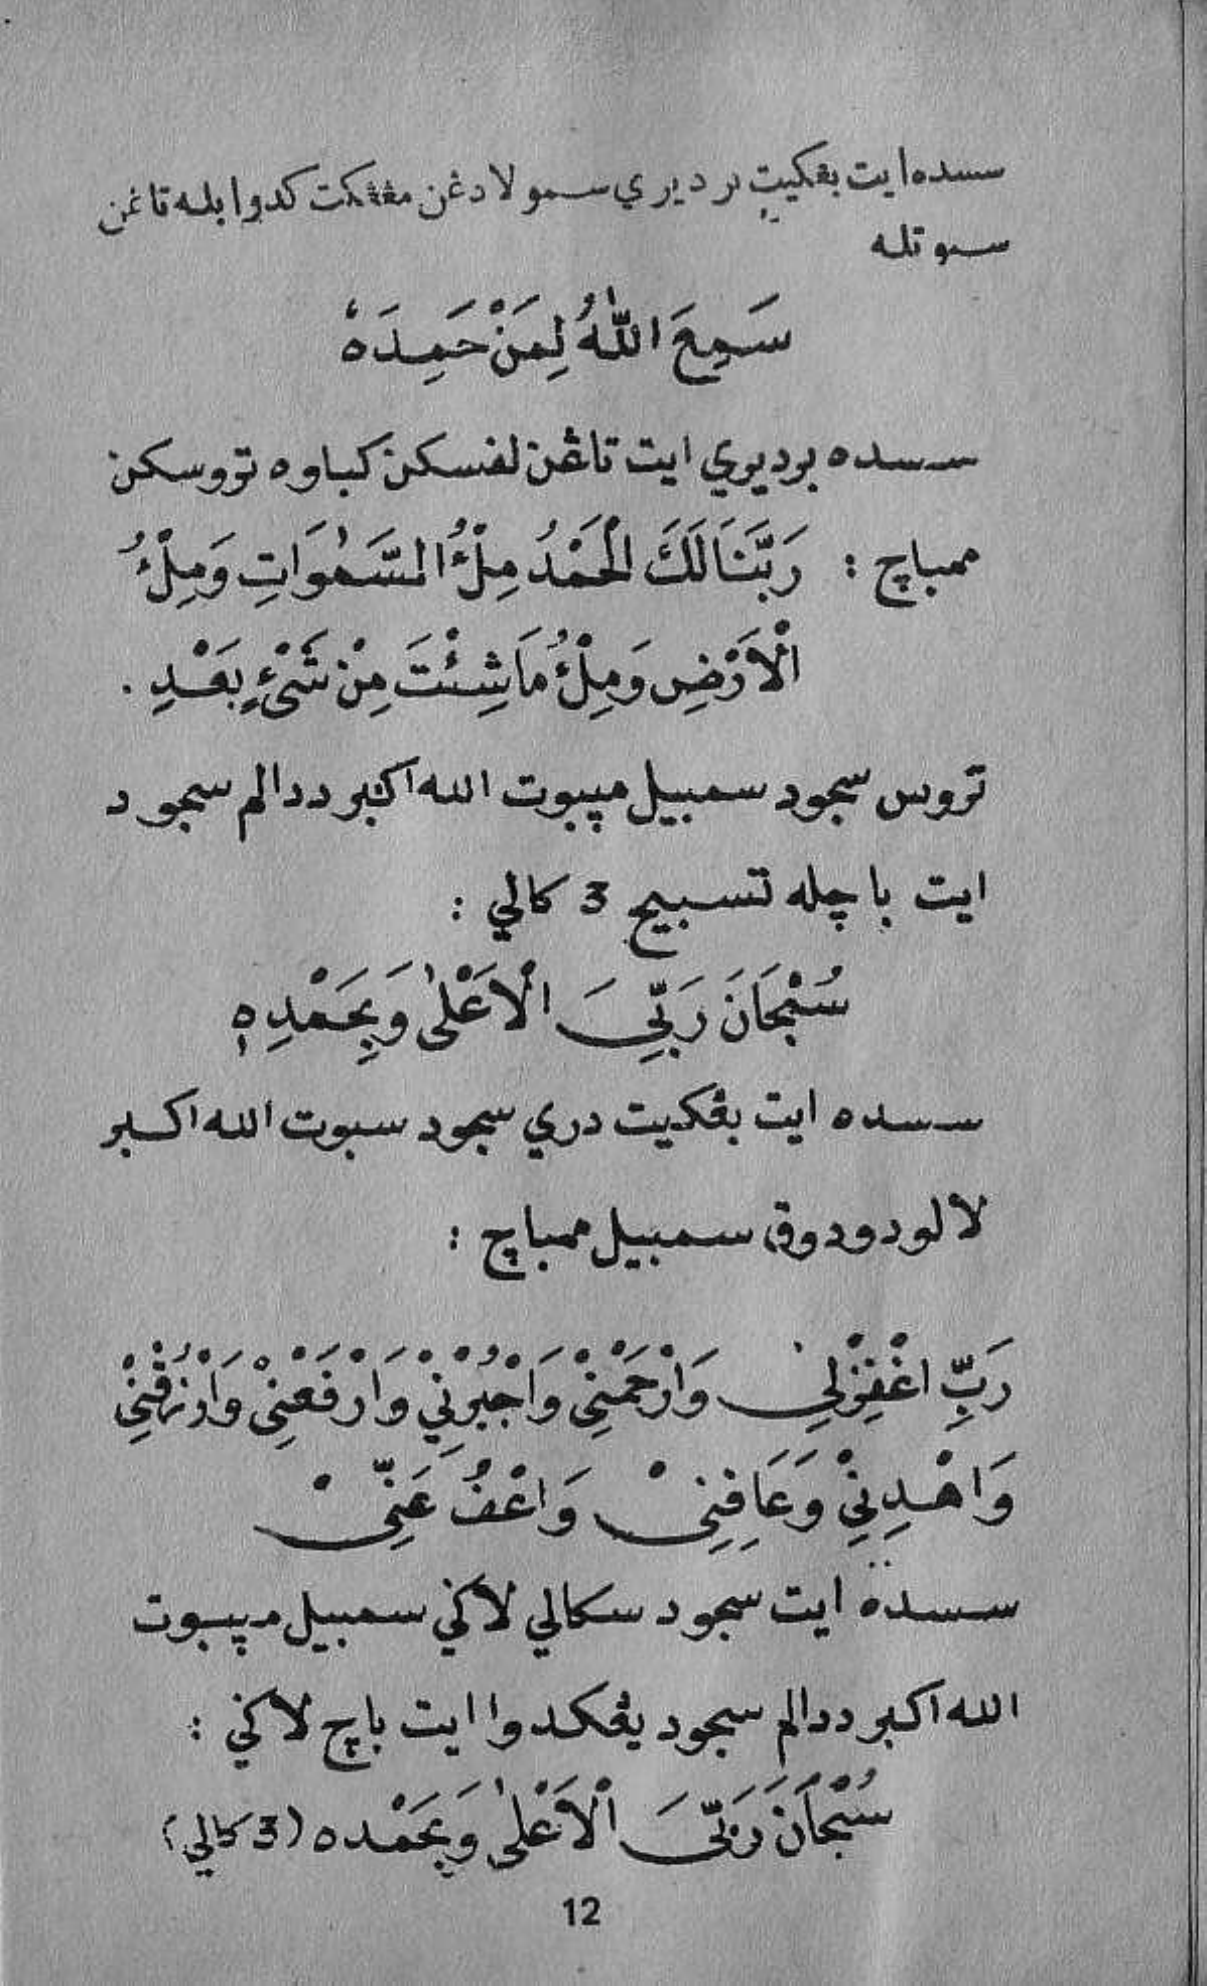 سسده ايت بڠكيت بر ديري سمولا دڠن مڠڠكت كدوا بله تاڠن
سبوتله
سَمِعَ اللّٰهُ لِمَنْ حَمِدَهٗ
سسده برديري ايت تاڠن لفسكن كباوه تروسكن
ممباچ : رَبَّنَا لَكَ الْحَمْدُ مِلْءُ السَّمٰوَاتِ وَمِلْءُ
الْاَرْضِ وَمِلْءُ مَا شِئْتَ مِنْ شَىْءٍ بَعْدِ .
تروس سجود سمبيل مپبوت الله اكبر ددالم سجود
ايت باچله تسبيح 3 كالي :
سُبْحَانَ رَبِّيَ الْاَعْلٰى وَبِحَمْدِهٖ
سسده ايت بڠكيت دري سجود سبوت الله اكبر
لالو دودوق سمبيل ممباچ :
رَبِّ اغْفِرْلِيْ وَارْحَمْنِيْ وَاجْبُرْنِيْ وَارْفَعْنِيْ وَارْزُقْنِيْ
وَاهْدِنِيْ وَعَافِنِيْ وَاعْفُ عَنِّيْ
سسدة ايت سجود سكالي لاݢي سمبيل مپبوت
الله اكبر ددالم سجود يڠكدوا ايت باچ لاݢي :
سُبْحَانَ رَبِّيَ الْاَعْلٰى وَبِحَمْده (3 كالي)
12